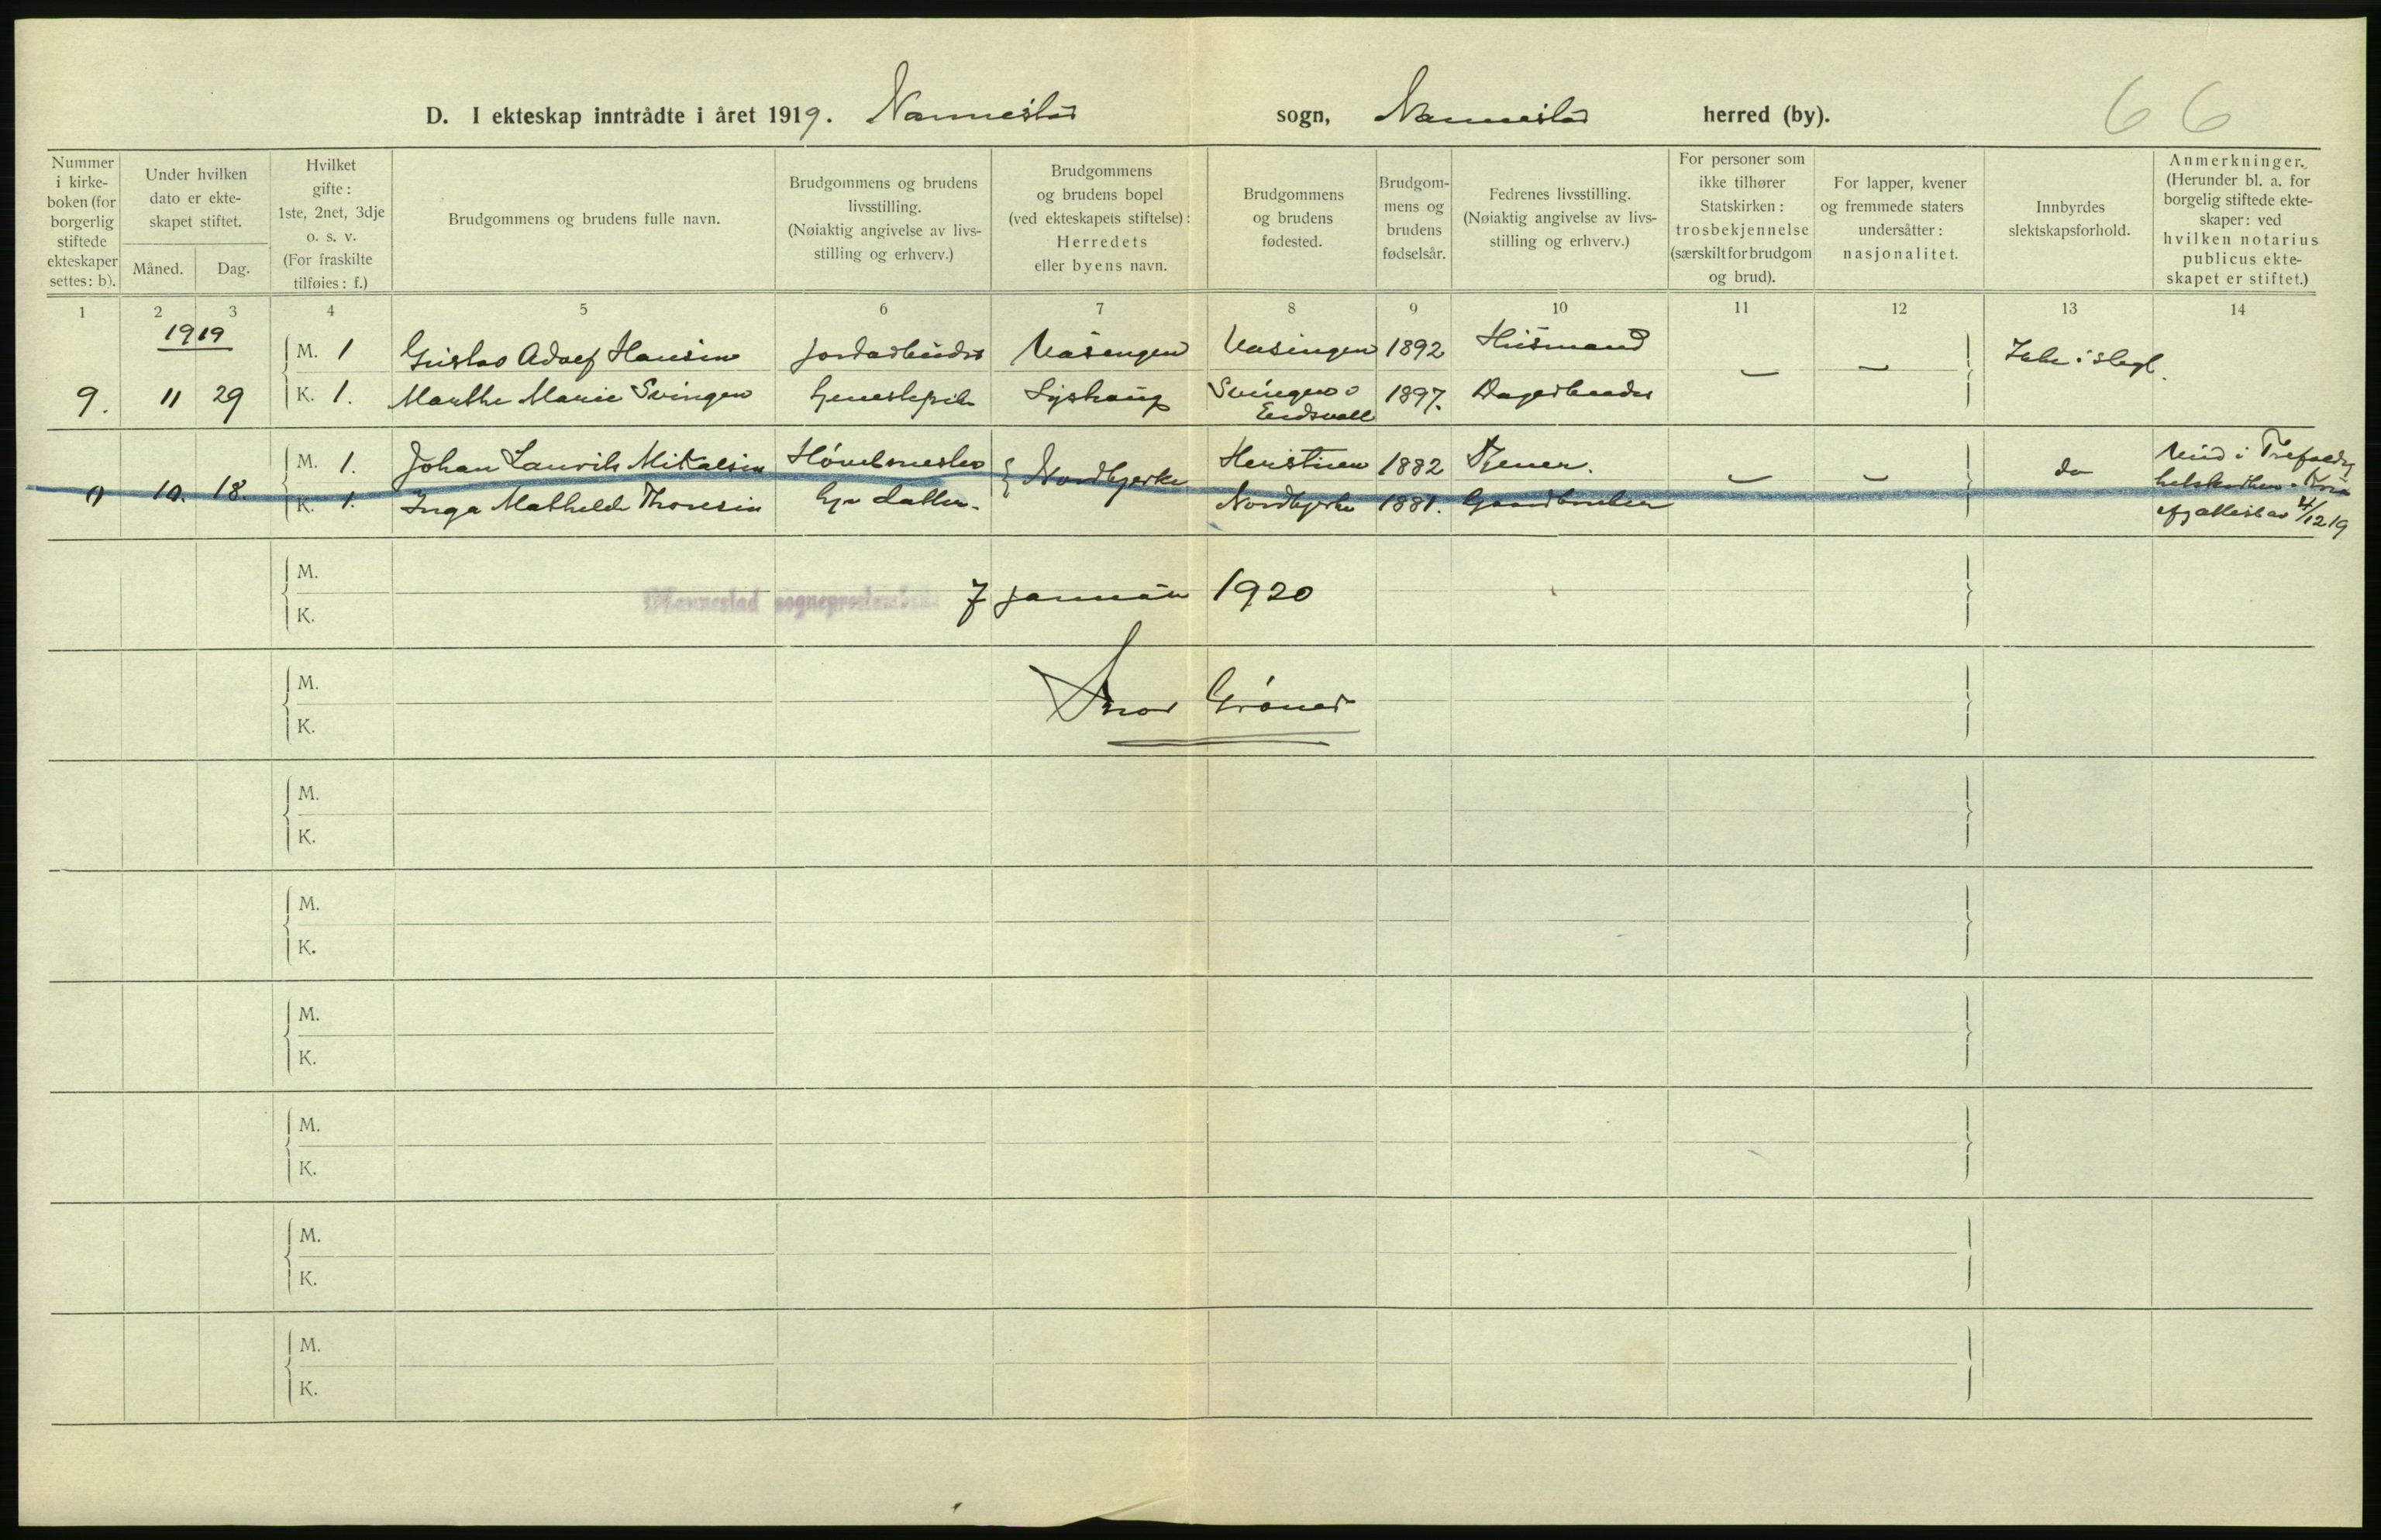 D. I ekteskap inntrådte i året 1919. Nannestad sogn, Nannestad herred (by). 66
Nummer i kirke- boken (for borgerlig stiftede ekteskaper settes: b).
Under hvilken dato er ekte- skapet stiftet.
Måned. Dag.
Hvilket gifte: 1ste, 2net, 3dje o. s. v. (For fraskilte tilføies: f.)
Brudgommens og brudens fulle navn.
Brudgommens og brudens livsstilling. (Nøiaktig angivelse av livs- stilling og erhverv.)
Brudgommens og brudens bopel (ved ekteskapets stiftelse): Herredets eller byens navn.
Brudgommens og brudens fødested.
Brudgom- mens og brudens fødselsår.
Fedrenes livsstilling. (Nøiaktig angivelse av livs- stilling og erhverv.)
For personer som ikke tilhører Statskirken: trosbekjennelse (særskilt for brudgom og brud).
For lapper, kvener og fremmede staters undersåtter: nasjonalitet.
Innbyrdes slektskapsforhold.
Anmerkninger. (Herunder bl. a. for borgelig stiftede ekte- skaper: ved hvilken notarius publicus ekte- skapet er stiftet.)
1 2 3 4 5 6 7 8 9 10 11 12 13 14
1919
M. 1 Gustav Adolf Hansen Jordarbeider Aasengen Aasengen 1892 Husmand — — Ikke i slegt.
9. 11 29 K. 1. Marthe Marie Svingen Lyshaug Svingen i Eidsvall 1897. Dagarbeider
M. 1. Johan Laurits Mikalsen Nordbjerke 1882 Tjener. — — do Viid i Trefoldig
10. 18. K. 1. Inga Mathilde Thoresen Gpr datter. Nordbjerke 1881. Gaardbruker 4/12 19
M.
K.
Nannestad sogneprestembede 7 januar 1920
M.
K.
Grøner
M.
K.
M.
K.
M.
K.
M.
K.
M.
K.
M.
K.